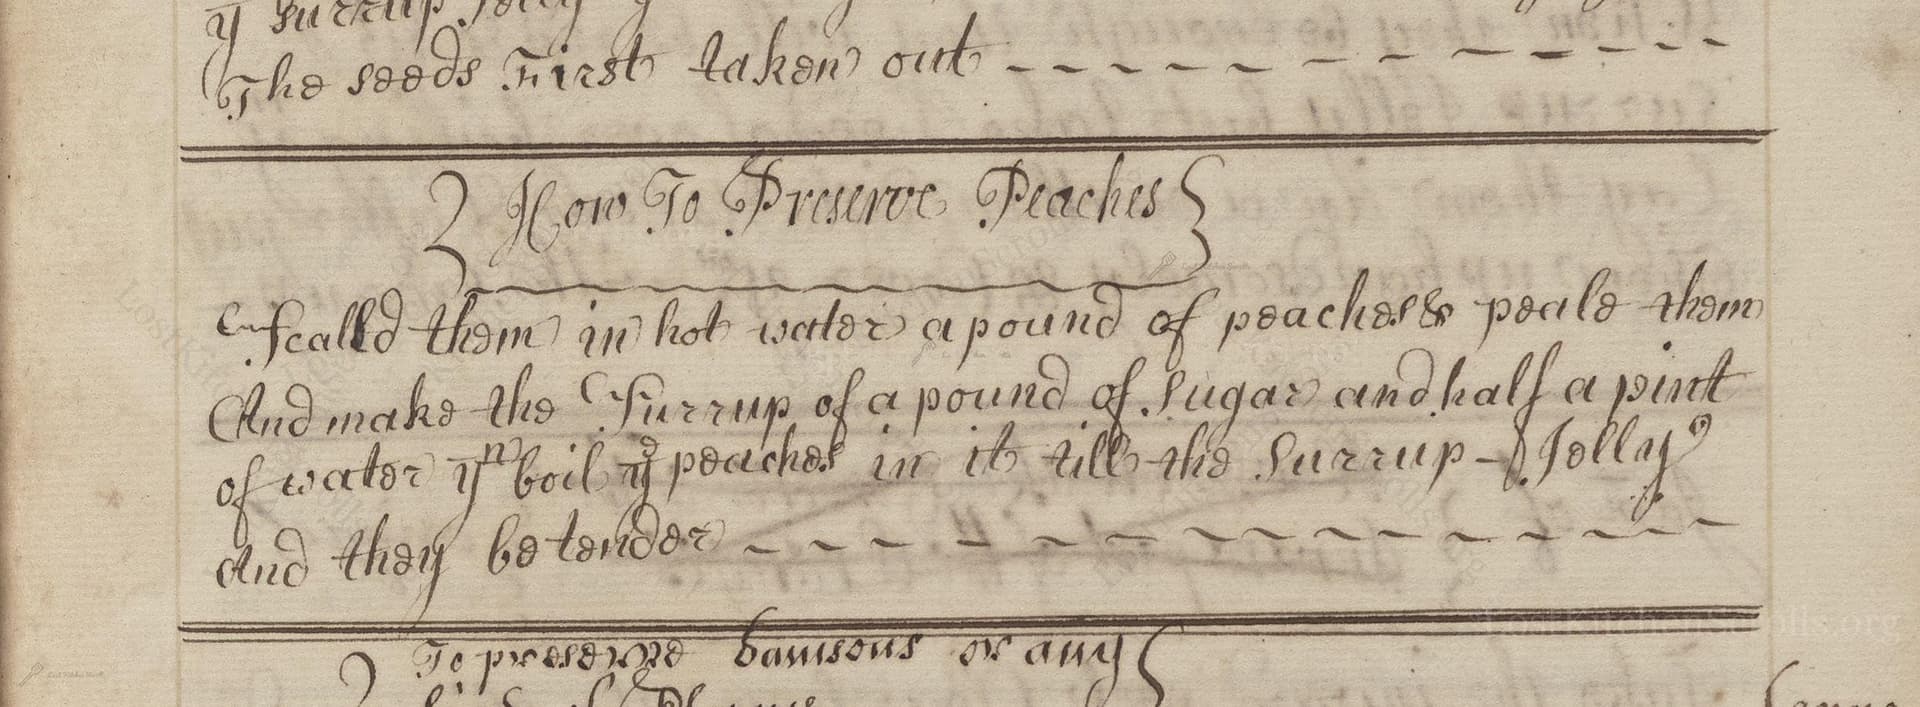 ye Surrup Jelly
The seeds First taken out
How To Preserve Peaches
Scalld them in hot water a pound of peaches & peale them
And make the Surrup of a pound of Sugar and half a pint
of water yn boil ye peaches in it till the Surrup Jelly
And they be tender
To preserve damsons or any
LostKitchenScrolls.org